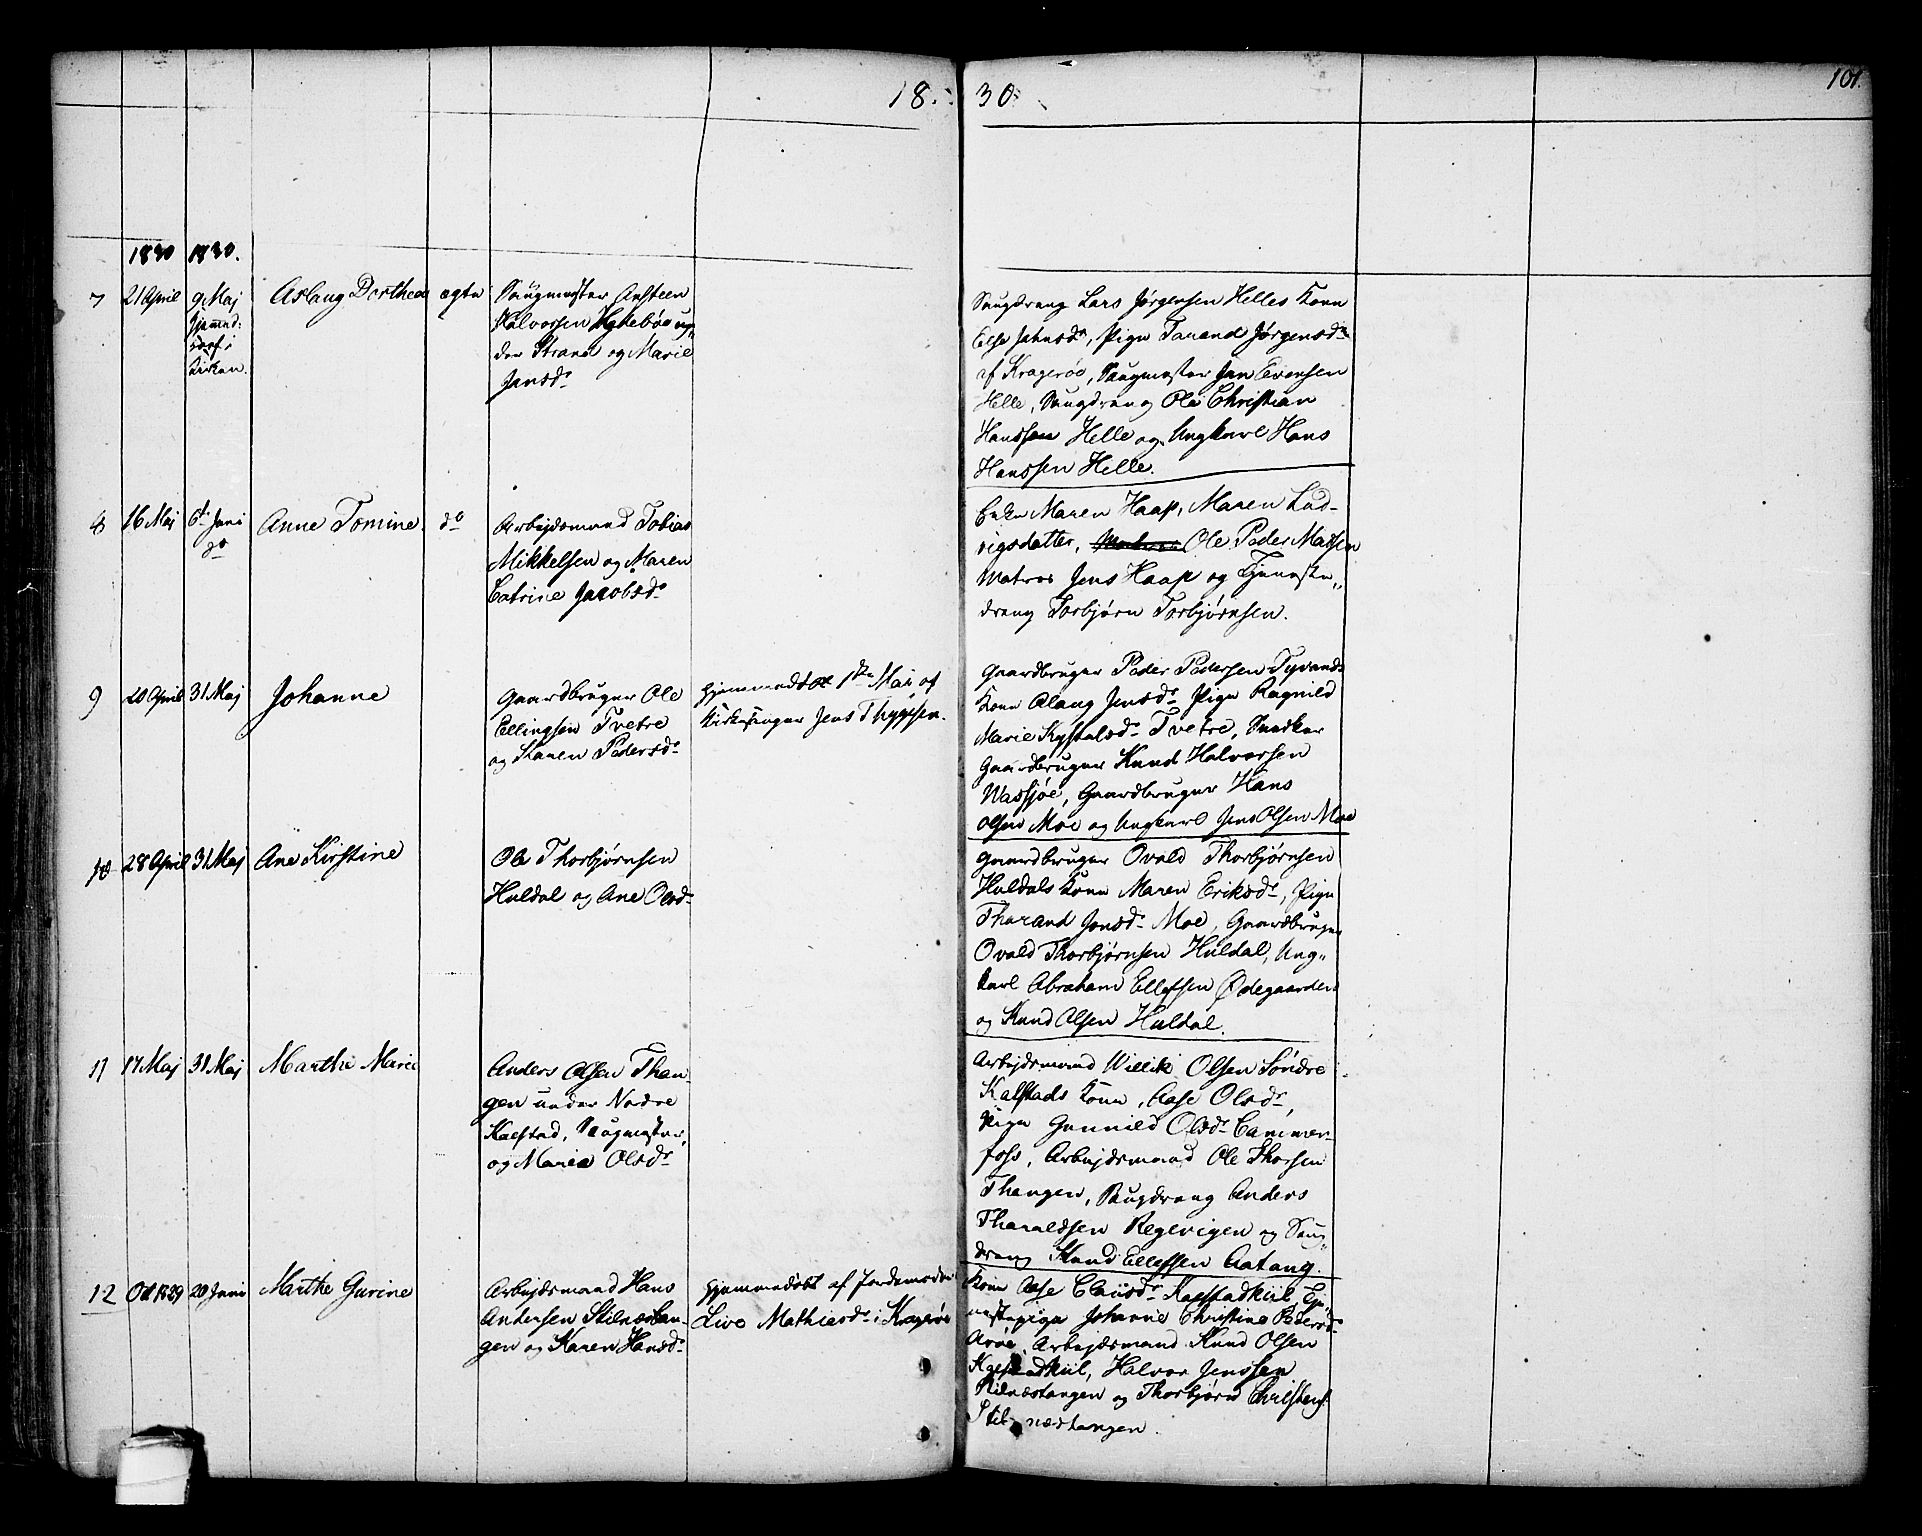 18 30
101.
1830 1830.
7 21 April 9 Maj Aslaug Dorthea ægte
Hjemmed:
i
Kirken
Saugmester Ansteen
Halvorsen un
der Strand og Marie
Jansd.
Saugdreng Lars Jørgensen Helles Kone
Else Johnsd., Pige Tarand Jørgensd.
af Kragerøe, Saugmester Jan Evensen
Helle, Saugdreng Ole Christian
Hanssen Helle og Ungkarl Hans
Hanssen Helle.
8 16 Maj 6te Juni Anne Tomine do
do
Arbejdsmand Tobias
Mikkelsen og Maren
Catrine Jacobsd.
Enke Maren Haap, Maren Lud-
vigsdatter, Ole Peder Matsen
Matros Jens Haap og Tjeneste„
dreng Torbjørn Torbjørnsen.
9 20 April 31 Maj Johanne
Gaardbruger Ole
Ellingsen Tvetre
og Karen Pedersd.
Hjemmedøbt 1ste Mai af
Kirkesanger Jens Thygesen.
Gaardbruger Peder Pedersen Tyvands
Kone Aslaug Jensd. Pige Ragnild
Marie Tvetre,
Gaardbruger Knud Halvorsen
Wassjøe, Gaardbruger Hans
Olsen Moe og Ungkarl Jens Olsen Moe
10 28 April 31 Maj Ane Kirstine
Ole Thorbjørnsen
Huldal og Ane Olsd.
Gaardbruger Ovald Thorbjørnsen
Huldals Kone Maren Eriksd., Pige
Tharand Jonsd. Moe, Gaardbruger
Ovald Thorbjørnsen Huldal, Ung„
karl Abraham Ellefsen Ødegaarden
og Knud Olsen Huldal.
11 17 Maj 31 Maj Marthe Marie
Anders Olsen Than-
gen under Nodre
Kalstad, Saugmester,
og Maria Olsd.
Arbejdsmand Willik Olsen Søndre
Kalstads Kone, Aase Olsd.,
Pige Gunnild Olsd. Cammer-
foss, Arbejdsmand Ole Thorsen
Thangen, Saugdreng Anders
Tharaldsen Regevigen og Saug„
dreng Knud Ellefsen Aatang.
12 Oct 1829 20 Juni Marthe Gurine
Arbejdsmand Hans
Andersen Stilnæstan-
gen og Karen Hansd.
Hjemmedøbt af Jordemoder
Live Mathiesd. i Kragerøe
Kone Aase Clausd. Kalstadkiil, Tje-
nestepige Johanne Christine Pedersd.
Arøe, Arbejdsmand Knud Olsen
Kalstadkiil, Halvor Jenssen
Stilnæstangen og Thorbjørn Christens.
Stilnæstangen.